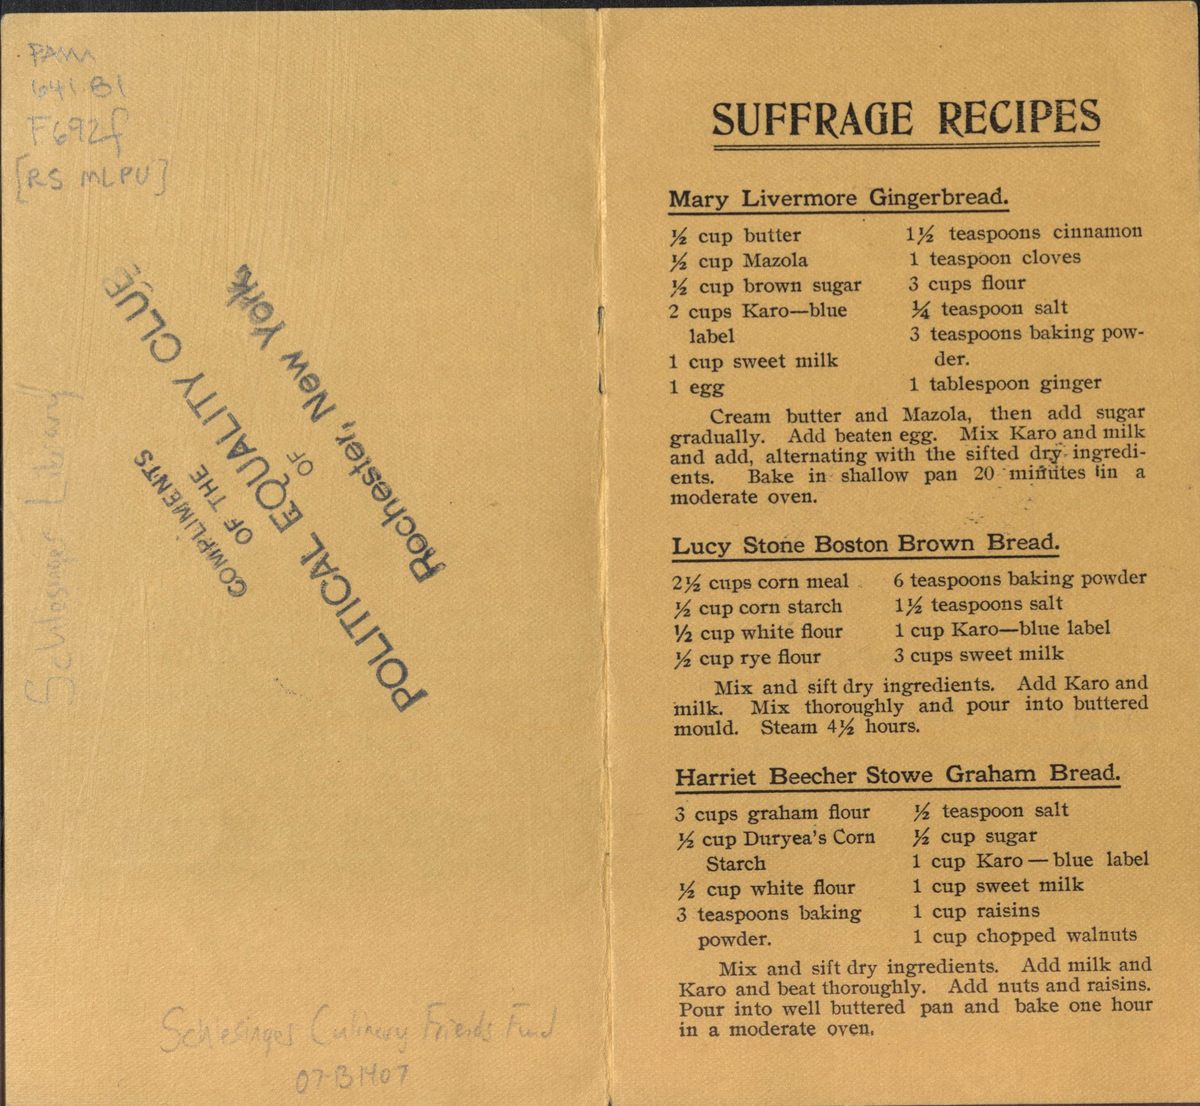 PAM
641.B1
F692f
[RS MLPU]
Schlesinger Library
COMPLIMENTS
OF THE
POLITICAL EQUALITY CLUB
OF
Rochester, New York
Schlesinger Culinary Friends Fund
07-B1407
SUFFRAGE RECIPES
Mary Livermore Gingerbread.
½ cup butter
½ cup Mazola
½ cup brown sugar
2 cups Karo—blue
label
1 cup sweet milk
1 egg
1½ teaspoons cinnamon
1 teaspoon cloves
3 cups flour
¼ teaspoon salt
3 teaspoons baking pow-
der.
1 tablespoon ginger
Cream butter and Mazola, then add sugar
gradually. Add beaten egg. Mix Karo and milk
and add, alternating with the sifted dry ingredi-
ents. Bake in shallow pan 20 minutes in a
moderate oven.
Lucy Stone Boston Brown Bread.
2½ cups corn meal
½ cup corn starch
½ cup white flour
½ cup rye flour
6 teaspoons baking powder
1½ teaspoons salt
1 cup Karo—blue label
3 cups sweet milk
Mix and sift dry ingredients. Add Karo and
milk. Mix thoroughly and pour into buttered
mould. Steam 4½ hours.
Harriet Beecher Stowe Graham Bread.
3 cups graham flour
½ cup Duryea's Corn
Starch
½ cup white flour
3 teaspoons baking
powder.
½ teaspoon salt
½ cup sugar
1 cup Karo — blue label
1 cup sweet milk
1 cup raisins
1 cup chopped walnuts
Mix and sift dry ingredients. Add milk and
Karo and beat thoroughly. Add nuts and raisins.
Pour into well buttered pan and bake one hour
in a moderate oven.